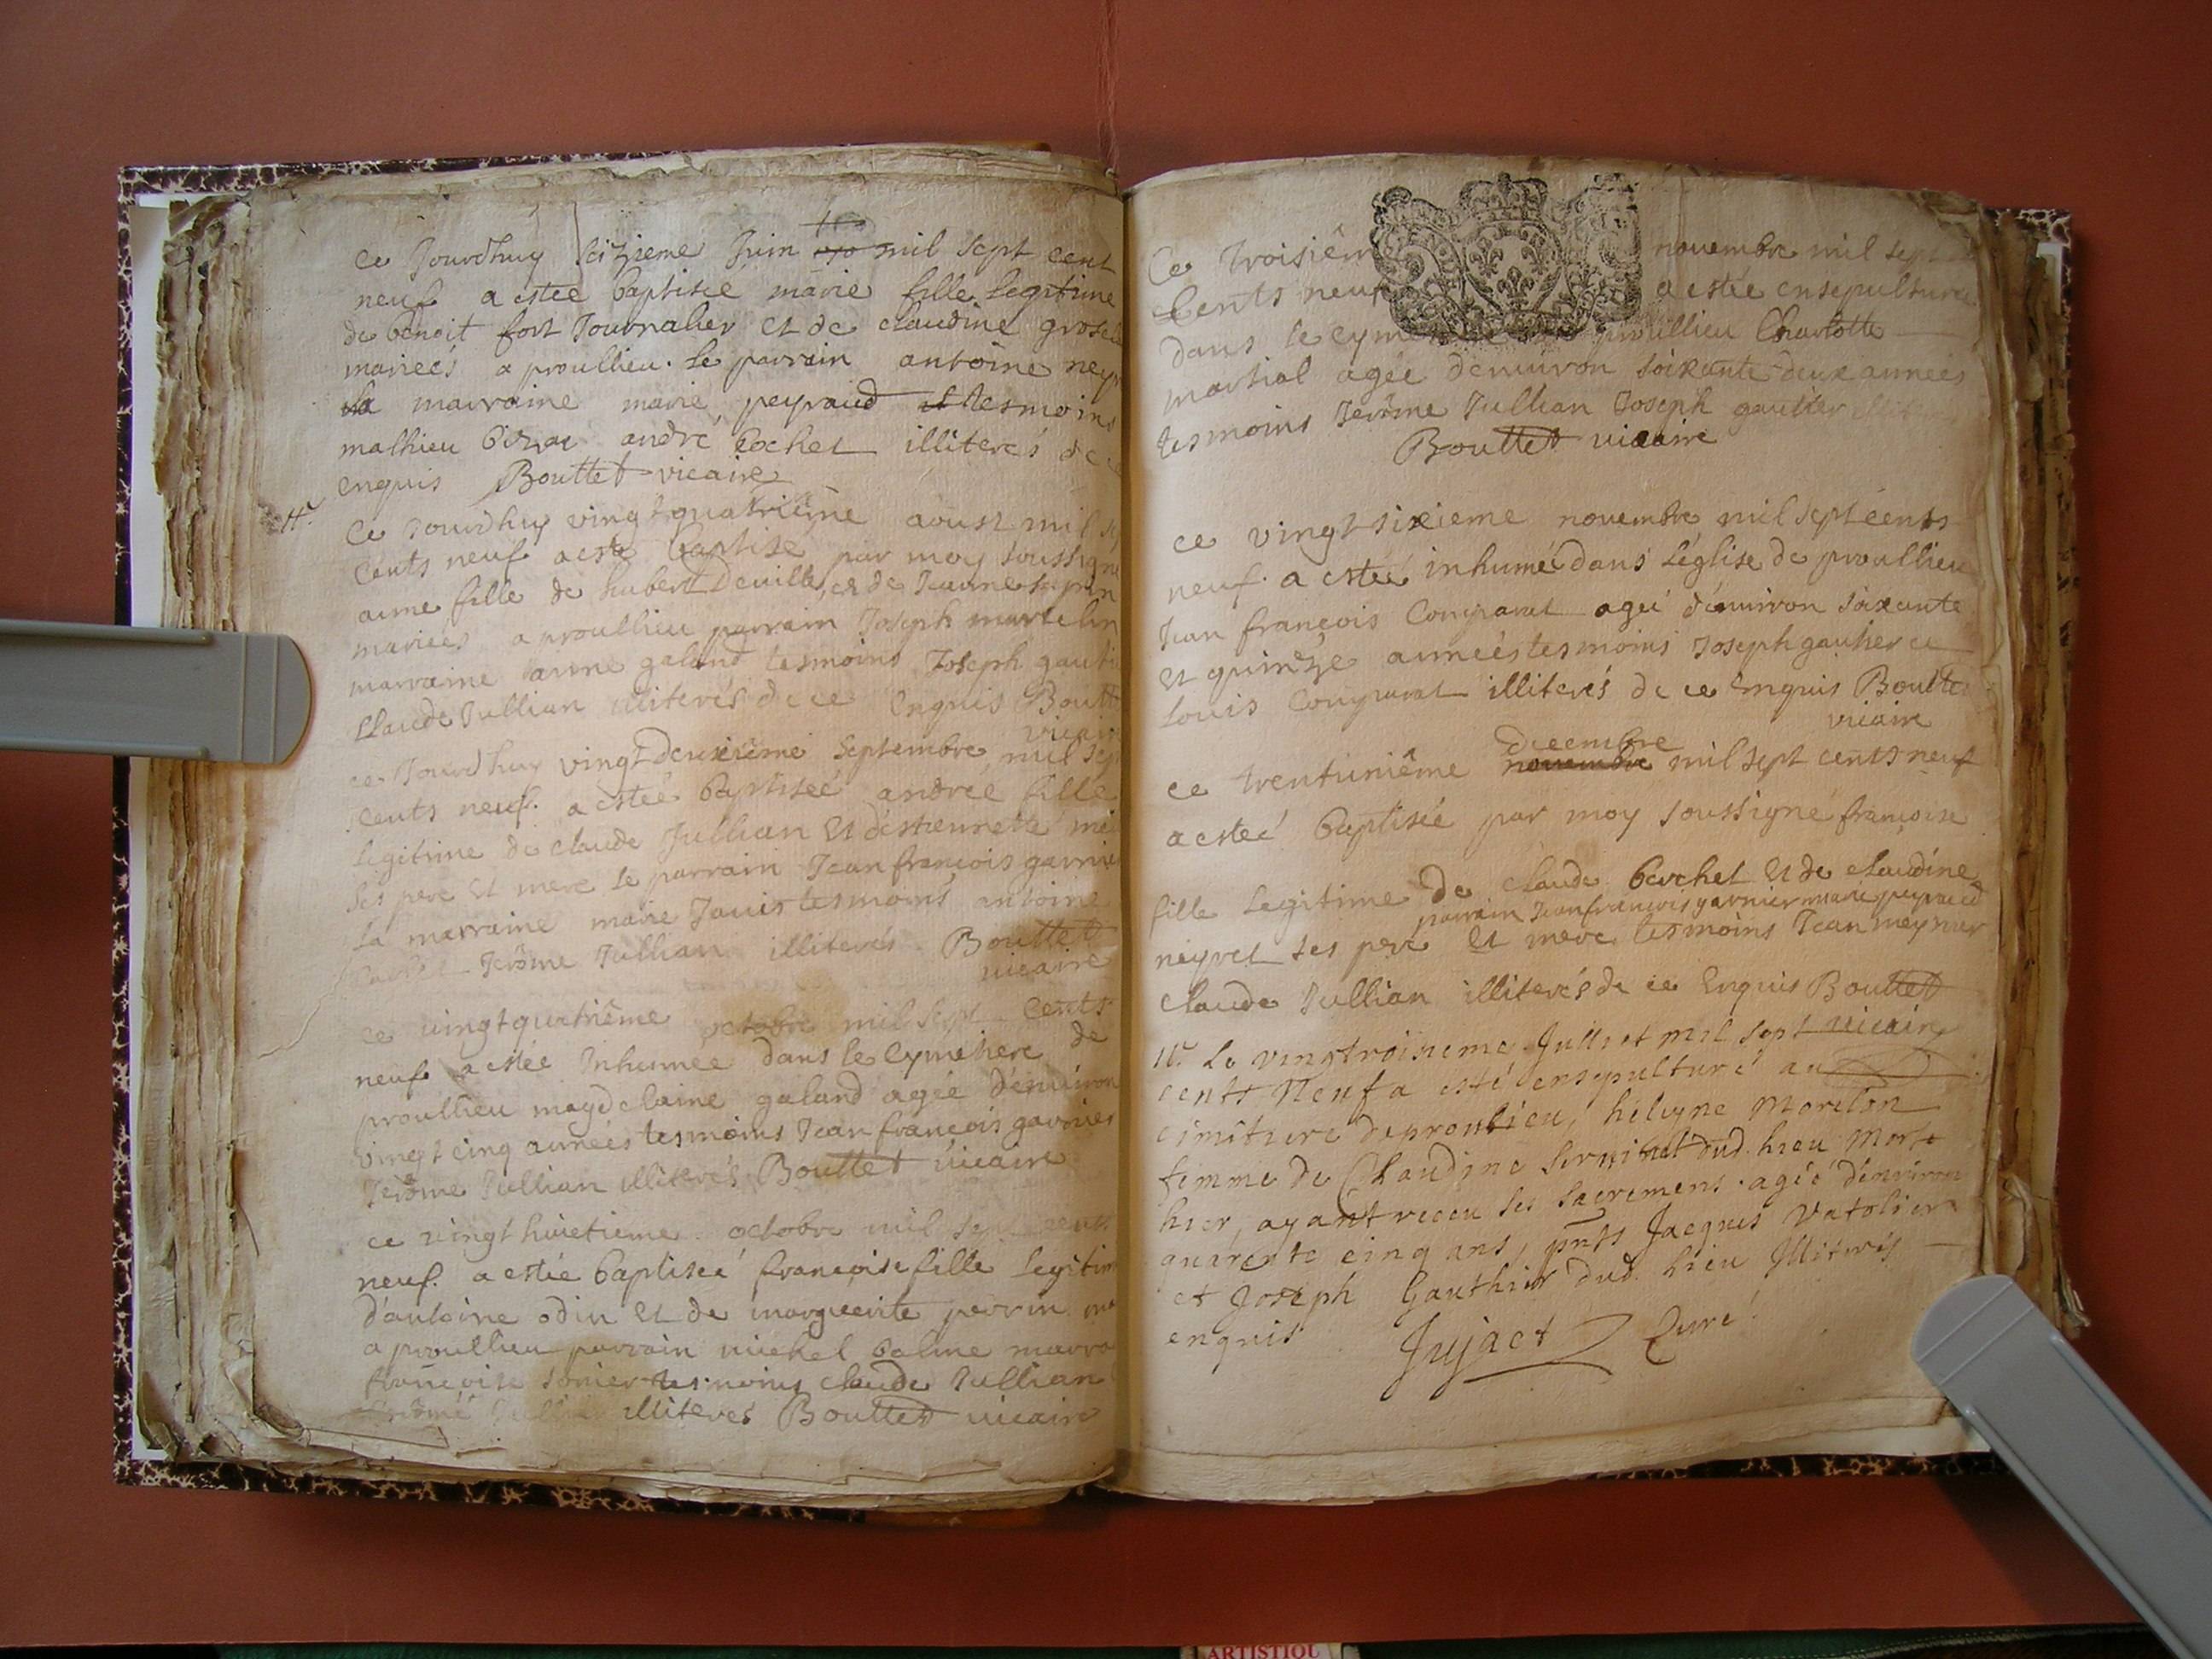 ce Jourdhuy seizieme Juin mil sept cent
neuf a estee baptisee marie fille legitime
de benoit fort Journalier et de claudine
mariees a proullieu. Le parrain antoine
la marraine marie peyraud et tesmoins
mathieu andre bochet illiterés de
enquis Bouttet vicaire
Ce Jourdhuy vingt quatriême aoust mil
cents neuf a este baptise par moy soussigne
anne fille de hubert Deuille, et de Jeanne
mariés a proullieu parrain Joseph martelin
marraine anne galand tesmoins Joseph
Claude Jullian illiterés de ce Enquis
ce Jourdhuy vingt deuxiême Septembre, mil
cents neuf. a estée baptiseé andreé fille
legitime de claude Jullian Et d'estiennette
ses pere et mere le parrain Jean françois
La marraine marie tesmoins antoine
Jerôme Jullian illiterés Bouttet
vicaire
ce vingt quatriême octobre mil sept cents
neuf a estée Inhumee dans le Cymetiere de
proullieu magdelaine galand agée d'enuiron
vingt cinq années tesmoins Jean françois garnier
Jerôme Jullian illiterés Bouttet vicaire
ce vingt huictieme octobre mil sept cents
neuf. a estée baptiseé françoise fille
d'antoine odin Et de marguerite perrin
a proullieu parrain michel balme
françoise tesmoins claude Jullian
illiterés Bouttet vicaire
Ce troisiême novembre mil sept
Cents neuf a estée ensepulturée
dans le proullieu Charlotte
martial agée denuiron soixante deux années
tesmoins Jerôme Jullian Joseph gautier
Bouttet vicaire
ce vingt sixieme novembre mil sept cents
neuf. a estée inhumé dans L'église de proullieu
Jean françois Comparat agé d'enuiron soixante
et quinze anneés tesmoins Joseph gautier et
Louis Comparat illiterés de ce Enquis Bouttet
vicaire
decembre
ce trentuniême novembre mil sept cents neuf
a esteé baptisée par moy soussigné françoise
fille Legitime de claude bochet Et de claudine
parrain Jean françois garnier marie peyraud
neyret ses pere et mere tesmoins Jean meynier
claude Jullian illiterés de ce Enquis Bouttet
vicaire
Le vingtroisieme Juillet mil sept
cents Neuf a esté ensepulturé au
cimitiere de proulieu, heleyne Morelon
femme de Claudine dud. lieu Morte
hier, ayant receu les sacremens. agéé d'environ
quarente cinq ans, pnts Jacques Vatolier
et Joseph Gauthier dud. lieu Illiterés
enquis Jujact Curé